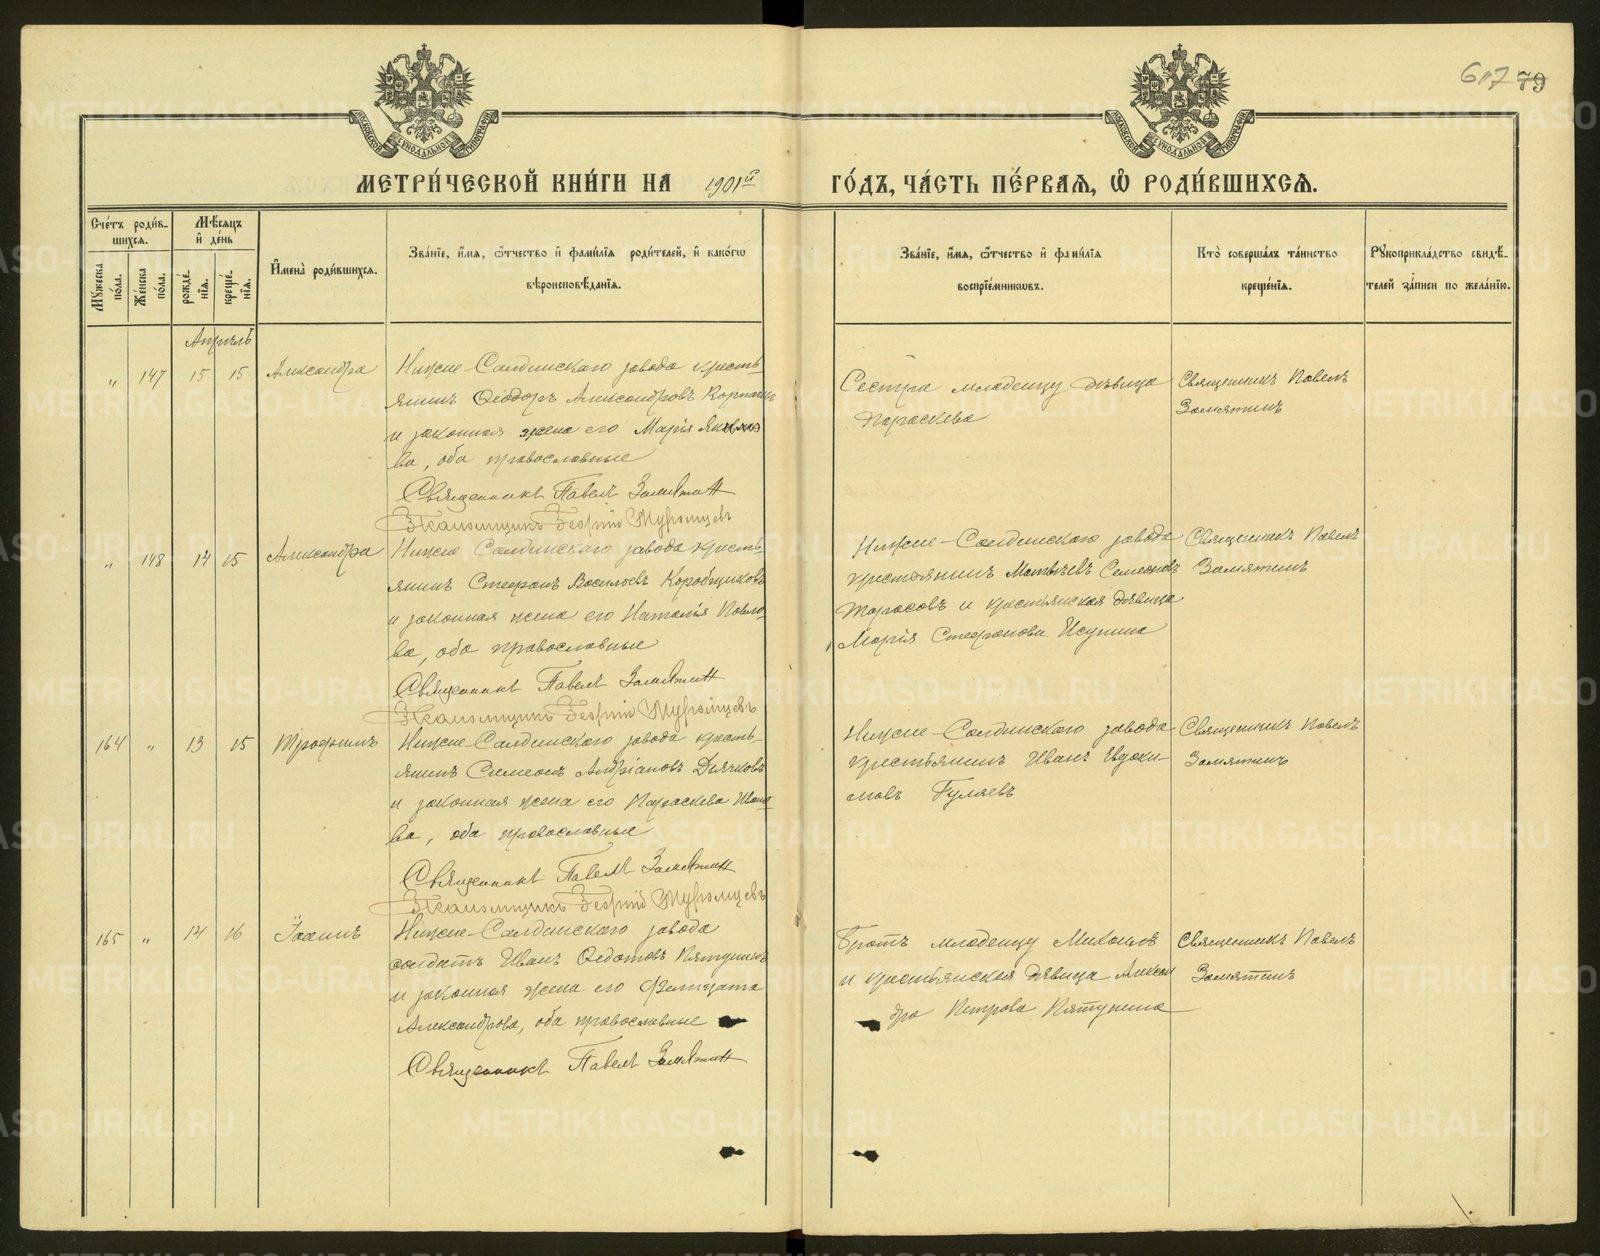 617 79
МЕТРИ́ЧЕСКОЙ КНИ́ГИ НА 1901й ГО́ДЪ, ЧА́СТЬ ПЕ́РВАЯ, Ѡ РОДИ́ВШИХСЯ.
Сче́тъ роди́в-
шихся.
Му́жеска по́ла.
Же́нска по́ла.
Мѣ́сяцъ
и҆ де́нь
рожде́-
нія.
креще́-
нія.
И҆мена̀ роди́вшихся.
Зва́нїе, и҆́мя, ѻ҆́тчество и҆ фами́лїя роди́телей, и҆ како́гѡ
вѣроисповѣ́данїя.
Зва́нїе, и҆́мя, ѻ҆́тчество и҆ фами́лїя
воспрїе́мникѡвъ.
Кто̀ соверша́лъ та́инство
креще́нїя.
Рꙋкоприкла́дство свидѣ́-
телей за́писи по жела́нїю.
Апрѣль
" 147 15 15 Александра
Нижне-Салдинскаго завода кресть-
янинъ Ѳеодоръ Александровъ
и законная жена его Марія Яковле-
ва, оба православные
Священникъ Павелъ Замятин
Псаломщикъ Георгій Муромцевъ
Сестра младенцу дѣвица
Параскева
Священникъ Павелъ
Замятинъ
" 148 14 15 Александра
Нижне Салдинскаго завода кресть-
янинъ Стефанъ Васильевъ Коробщиковъ
и законная жена его Наталія Павло-
ва, оба православные
Священникъ Павелъ Замятин
Псаломщикъ Георгій Муромцевъ
Нижне-Салдинскаго завода
крестьянинъ Матвѣевъ Семеновъ
Тарасовъ и крестьянская дѣвица
Марія Стефанова Исупина
Священникъ Павелъ
Замятинъ
164 " 13 15 Трофимъ
Нижне-Салдинскаго завода кресть-
янинъ Симеонъ Андріановъ Дьячковъ
и законная жена его Параскева Ивано-
ва, оба православные
Священникъ Павелъ Замятин
Псаломщикъ Георгій Муромцевъ
Нижне-Салдинскаго завода
крестьянинъ Иванъ Евдоки-
мовъ Гуляевъ
Священникъ Павелъ
Замятинъ
165 " 14 16 Іоаннъ
Нижне-Салдинскаго завода
солдатъ Иванъ Ѳедотовъ Пятунинъ
и законная жена его Фелицата
Александрова, оба православные
Священникъ Павелъ Замятин
Братъ младенцу Михаилъ
и крестьянская дѣвица Алексан
дра Петрова Пятунина
Священникъ Павелъ
Замятинъ
METRIKI.GASO-URAL.RU